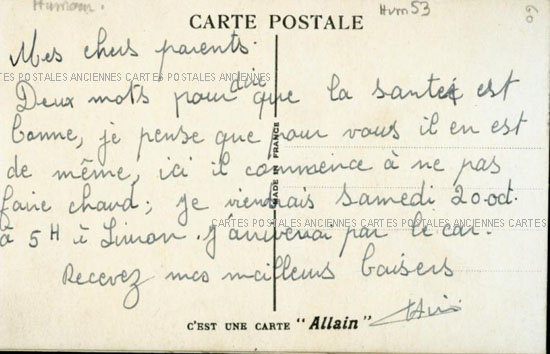 Humour.
Hum 53
60
CARTE POSTALE
Mes chers parents.
CARTES POSTALES ANCIENNES CARTES POSTALES ANCIENNES CARTES
Deux mots pour dire que la santé est
bonne, je pense que pour vous il en est
de même, ici il commence à ne pas
faire chaud; je viendrais samedi 20 oct.
CARTES POSTALES ANCIENNES CARTES POSTALES ANCIENNES CARTES
à 5H à . J'arriverai par le car.
Recevez mes meilleurs baisers
MADE IN FRANCE
C'EST UNE CARTE "Allain"